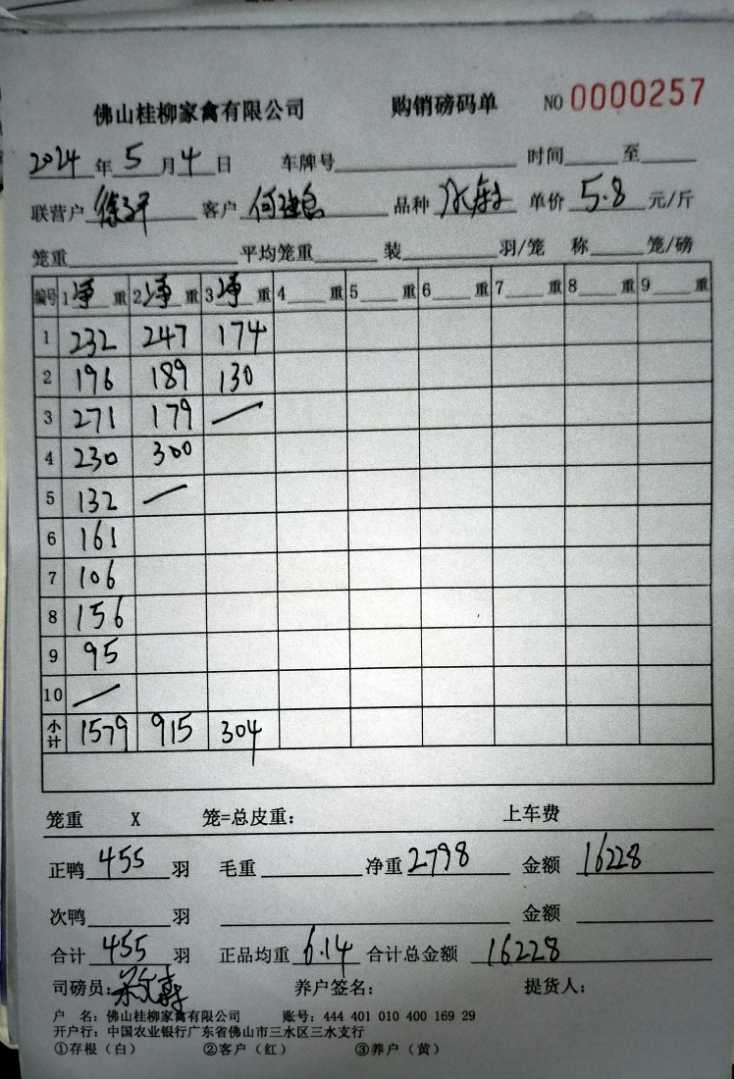 佛山桂柳家禽有限公司 购销磅码单 NO 0000257
2024 年 5 月 4 日 车牌号 时间 至
联营户 客户 品种 单价 5.8 元/斤
笼重 平均笼重 装 羽/笼 称 笼/磅
编号 1 净 重 2 净 重 3 净 重 4 重 5 重 6 重 7 重 8 重 9 重
1 232 247 174
2 196 189 130
3 271 179 /
4 230 300
5 132 /
6 161
7 106
8 156
9 95
10 /
小计 1579 915 304
笼重 X 笼=总皮重： 上车费
正鸭 455 羽 毛重 净重 2798 金额 16228
次鸭 羽 金额
合计 455 羽 正品均重 6.14 合计总金额 16228
司磅员： 养户签名： 提货人：
户 名：佛山桂柳家禽有限公司 账号：444 401 010 400 169 29
开户行：中国农业银行广东省佛山市三水区三水支行
①存根（白） ②客户（红） ③养户（黄）